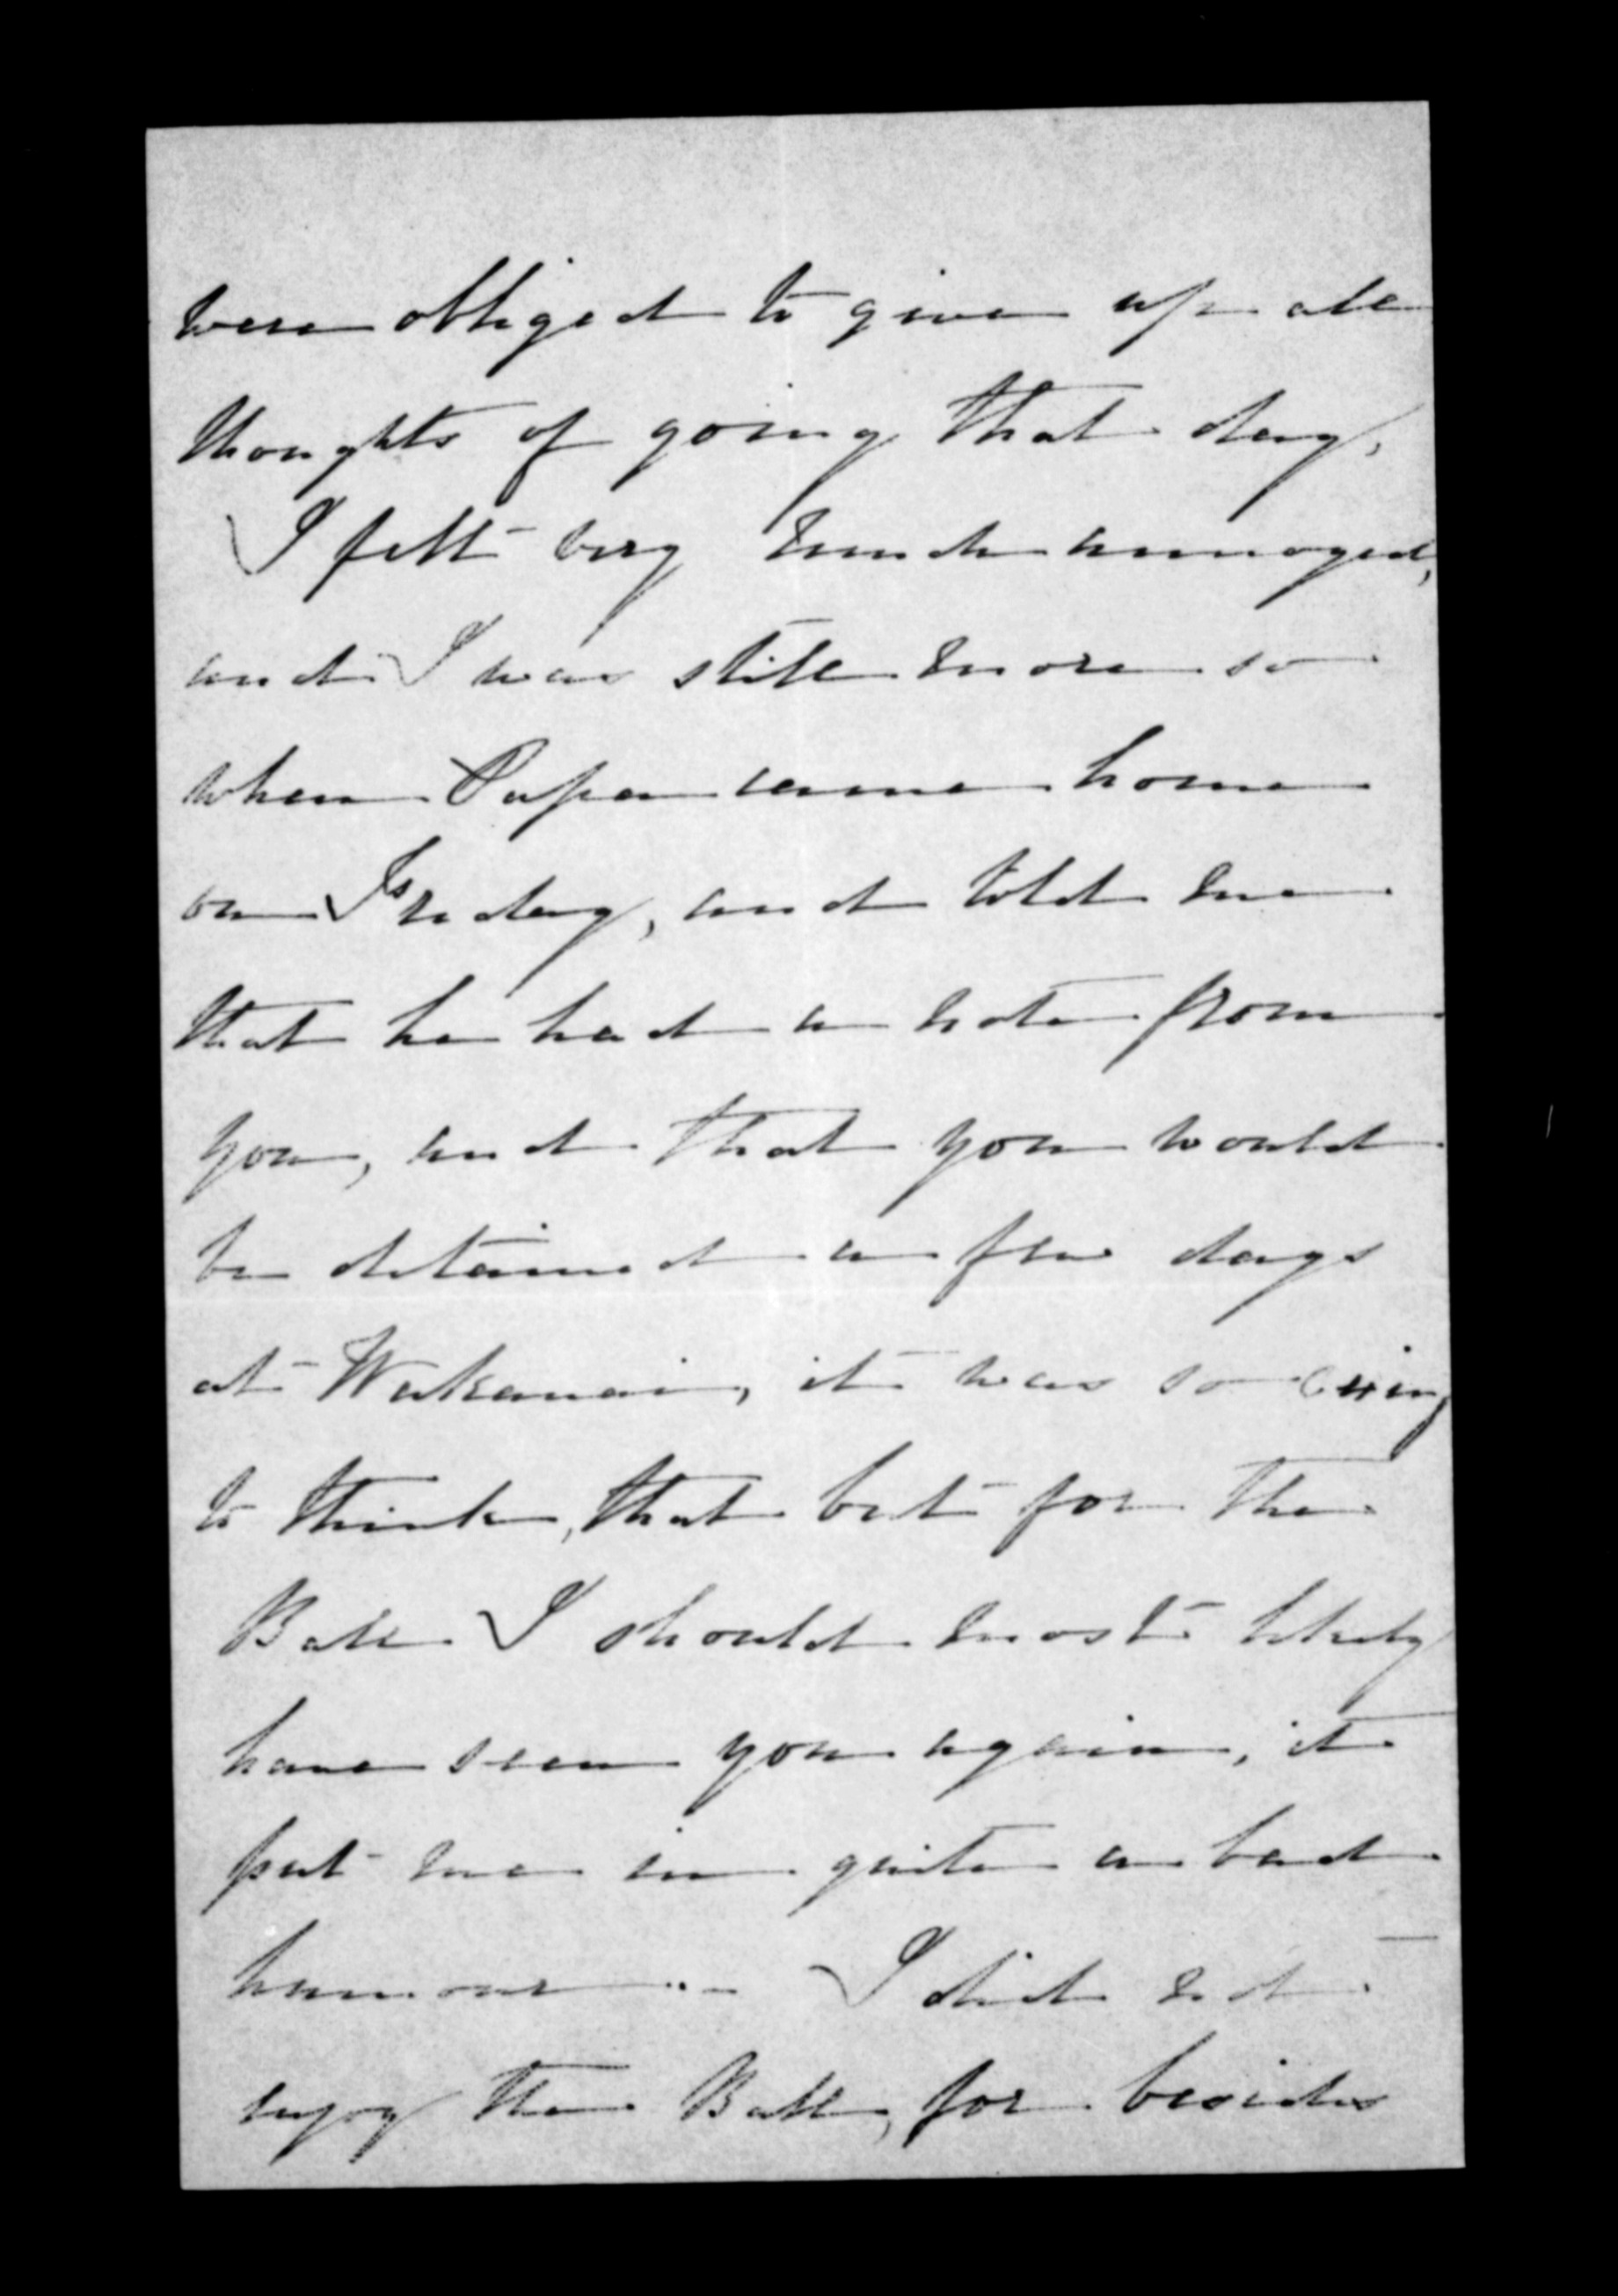 were obliged to give up all
thoughts of going that day,
I felt very much annoyed,
and I was still more so
when Papa came home
on Friday, and told me
that he had a note from
you, and that you would
be detained a few days
at Wakanai, it was so
to think, that but for the
Ball I should most likely
have seen you again, it
put me in quite a bad
humour — I did not
enjoy the Ball, for besides